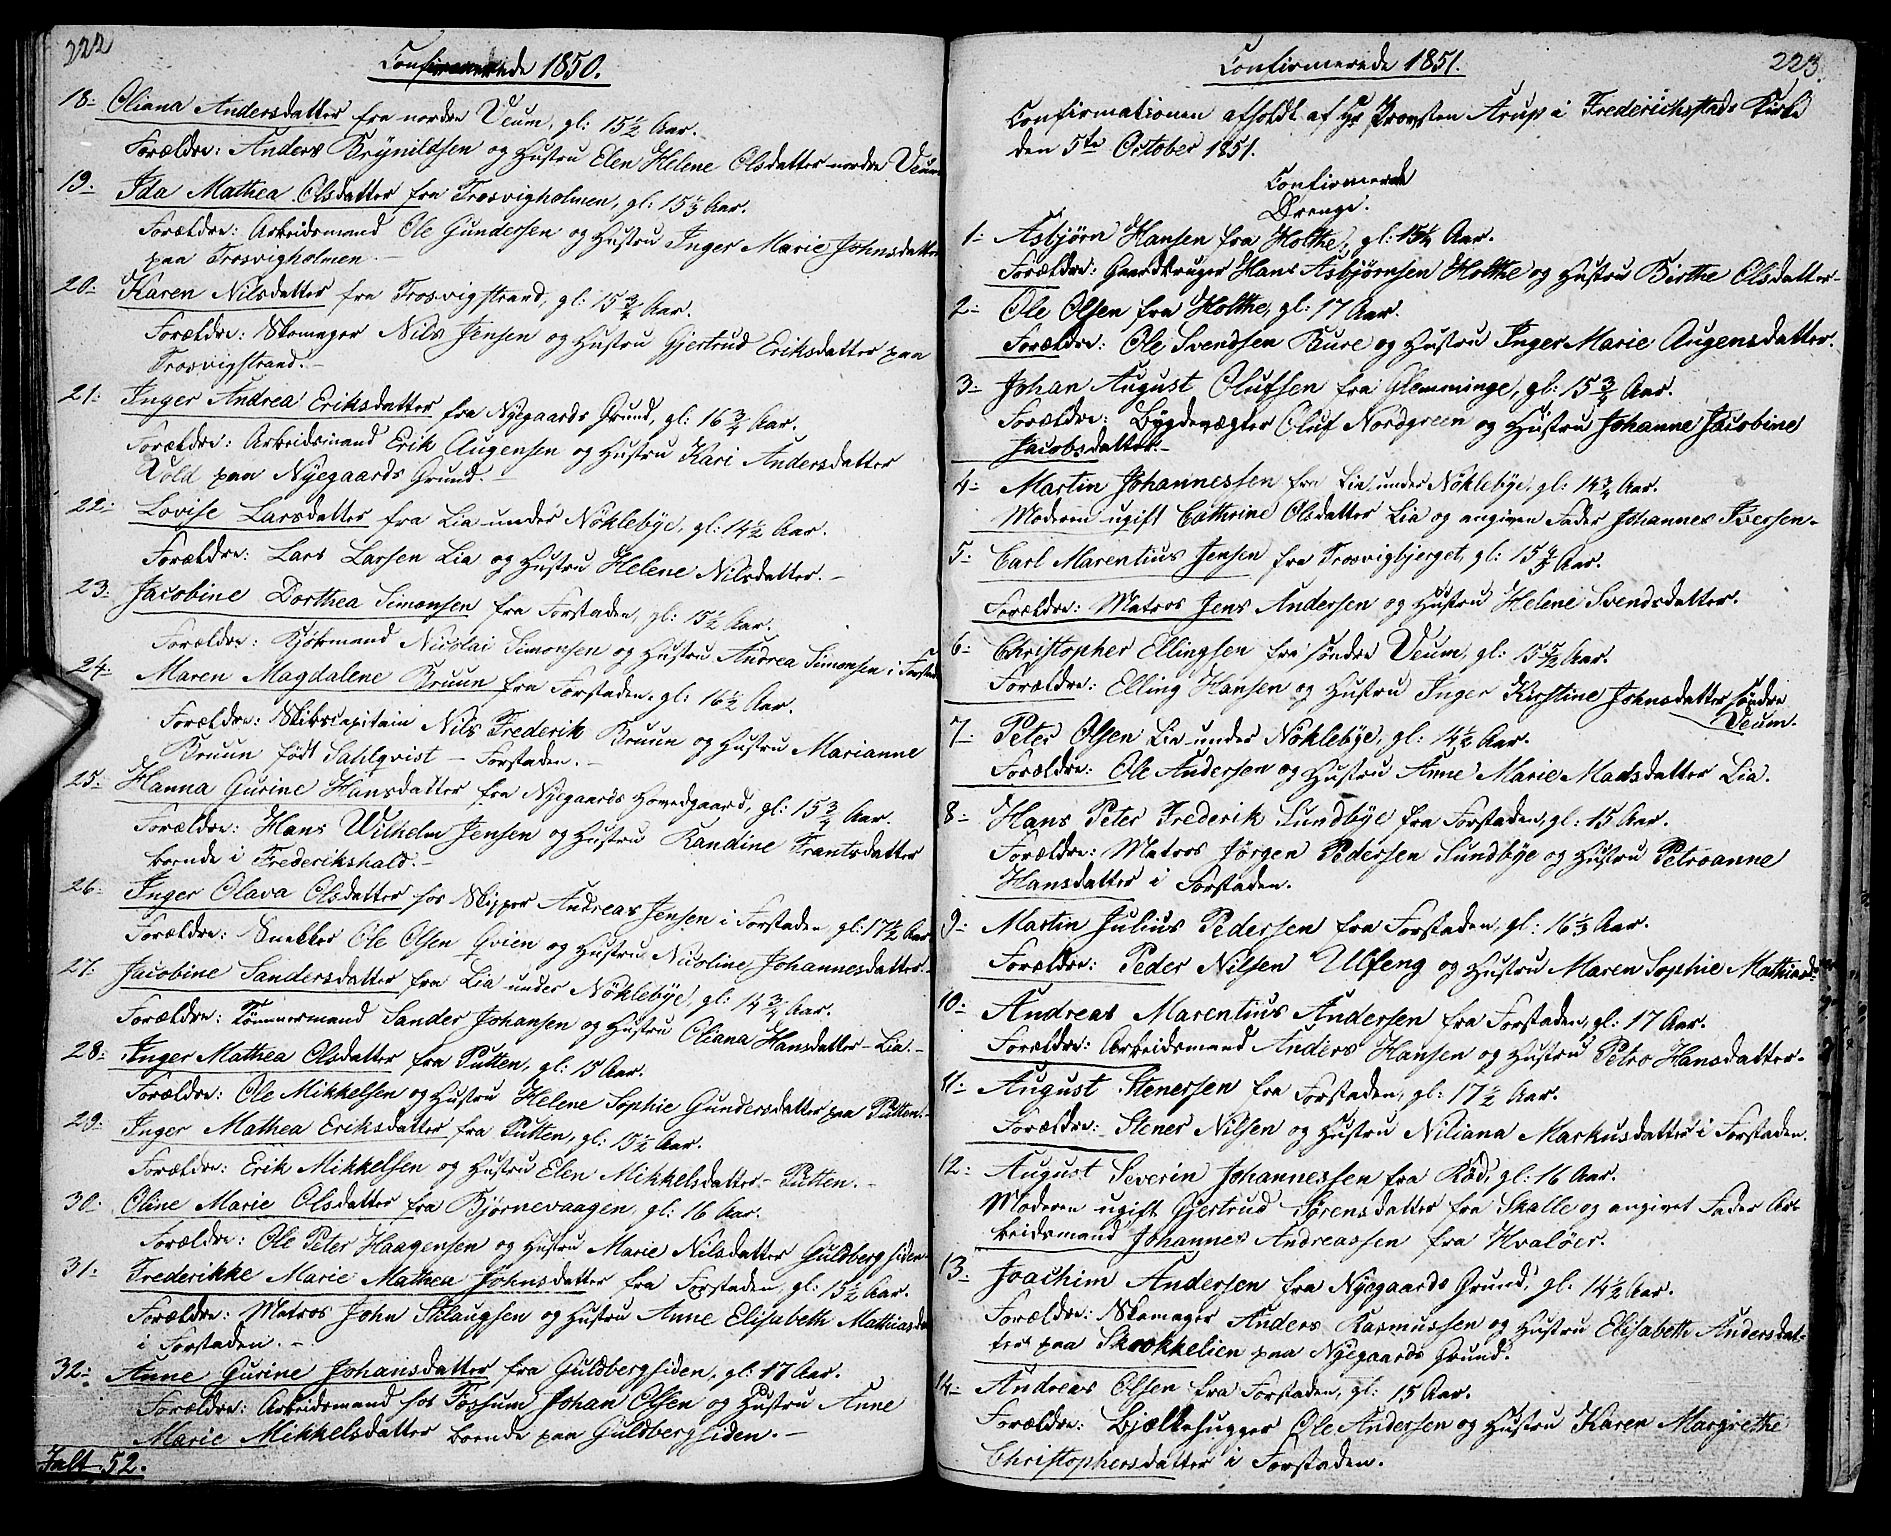 222
Confirmerede 1850.
18: Oliana Andersdatter fra nordre Veum, gl: 15½ Aar.
Forældre: Anders Brynildsen og Hustru Elen Helene Olsdatter nordre Veum
19: Ida Mathea Olsdatter fra Trosvigholmen, gl: 15⅓ Aar.
Forældre: Arbeidsmand Ole Gundersen og Hustru Inger Marie Johnsdatter
paa Trosvigholmen.
20: Karen Nilsdatter fra Trosvigstrand, gl: 15¾ Aar.
Forældre: Skomager Nils Jensen og Hustru Gjertrud Eriksdatter paa
Trosvigstrand.
21: Inger Andrea Eriksdatter fra Nyegaards Grund, gl: 16¾ Aar.
Forældre: Arbeidsmand Erik Augensen og Hustru Kari Andersdatter
Vold paa Nyegaards Grund.
22: Lovise Larsdatter fra Lia under Nöklebye, gl: 14½ Aar.
Forældre: Lars Larsen Lia og Hustru Helene Nilsdatter.
23: Jacobine Dorthea Simonsen fra Forstaden, gl: 15½ Aar.
Forældre: Kjøbmand Nicolai Simonsen og Hustru Andrea Simonsen i Forstad
24: Maren Magdalene Bruun fra Forstaden, gl: 16½ Aar.
Forældre: Skibscapitain Nils Frederik Bruun og Hustru Marianne
Bruun født Sahlqvist – Forstaden.
25: Hanna Gurine Hansdatter fra Nyegaards Hovedgaard, gl: 15¾ Aar.
Forældre: Hans Wilhelm Jensen og Hustru Randine Frantsdatter
boende i Frederikshald.
26: Inger Olava Olsdatter hos Skipper Andreas Jensen i Forstaden, gl: 17½ Aar
Forældre: Snekker Ole Olsen Qvien og Hustru Nicoline Johannesdatter.
27: Jacobine Sandersdatter fra Lia under Nöklebye, gl: 14¾ Aar.
Forældre: Tømmermand Sander Johansen og Hustru Oliana Hansdatter – Lia.
28: Inger Mathea Olsdatter fra Putten, gl: 15 Aar.
Forældre: Ole Mikkelsen og Hustru Helene Sophie Gundersdatter paa Putten.
29: Inger Mathea Eriksdatter fra Putten, gl: 15½ Aar.
Forældre: Erik Mikkelsen og Hustru Elen Mikkelsdatter – Putten.
30: Oline Marie Olsdatter fra Bjørnevaagen, gl: 16 Aar.
Forældre: Ole Peter Haagensen og Hustru Marie Nilsdatter Guldbergsiden
31: Frederikke Marie Mathea Johnsdatter fra Forstaden, gl: 15½ Aar.
Forældre: Matros John Stilaugsen og Hustru Anne Elisabeth Mathiasda
i Forstaden.
32: Anne Gurine Johansdatter fra Guldbergsiden, gl: 17 Aar.
Forældre: Arbeidsmand hos Fossum Johan Olsen og Hustru Anne
Marie Mikkelsdatter boende paa Guldbergsiden.
Ialt 52.
223.
Confirmerede 1851.
Confirmationen afholdt af Hr Provsten Arup i Frederichsstads Kirke
den 5te October 1851.
Confirmerede
Drenge.
1: Asbjørn Hansen fra Holthe, gl: 15¼ Aar.
Forældre: Gaardbruger Hans Asbjørnsen Holthe og Hustru Birthe Olsdatter
2: Ole Olsen fra Holthe, gl: 17 Aar.
Forældre: Ole Svendsen Bure og Hustru Inger Marie Augensdatter.
3: Johan August Olufsen fra Glemminge, gl: 15¾ Aar.
Forældre: Bygdevægter Oluf Nordgreen og Hustru Johanne Jacobine
Jacobsdatter.
4: Martin Johannessen fra Lia under Nöklebye, gl: 14¾ Aar.
Moderen ugift Cathrine Olsdatter Lia og angiven Fader Johannes Iversen
5: Carl Marentius Jensen fra Trosvigbjerget, gl: 15 Aar.
Forældre: Matros Jens Andersen og Hustru Helene Svendsdatter.
6: Christopher Ellingsen fra søndre Veum, gl: 15½ Aar.
Forældre: Elling Hansen og Hustru Inger Kirstine Johnsdatter søndre
Veum.
7: Peter Olsen Lia under Nöklebye, gl: 14½ Aar.
Forældre: Ole Andersen og Hustru Anne Marie Madsdatter Lia.
8: Hans Peter Frederik Sundbye fra Forstaden, gl: 15 Aar.
Forældre: Matros Jørgen Pedersen Sundbye og Hustru Petroanne
Hansdatter i Forstaden.
9: Martin Julius Pedersen fra Forstaden, gl: 16⅓ Aar.
Forældre: Peder Nilsen Ulfeng og Hustru Maren Sophie Mathiasd:
10: Andreas Marentius Andersen fra Forstaden, gl: 17 Aar.
Forældre: Arbeidsmand Anders Hansen og Hustru Petro Hansdatter.
11: August Stenersen fra Forstaden, gl: 17½ Aar.
Forældre: Stener Nilsen og Hustru Niliana Markusdatter i Forstaden.
12: August Severin Johannessen fra Rød, gl: 16 Aar.
Moderen ugift Gjertrud Sørensdatter fra Skalle og angivet Fader Ar-
beidsmand Johannes Andreassen fra Hvaløer.
13: Joachim Andersen fra Nyegaards Grund, gl: 14½ Aar.
Forældre: Skomager Anders Rasmussen og Hustru Elisabeth Andersdat-
ter paa Skrokkelien paa Nyegaards Grund.
14: Andreas Olsen fra Forstaden, gl: 15 Aar.
Forældre: Bjælkehugger Ole Andersen og Hustru Karen Margrethe
Christophersdatter i Forstaden.